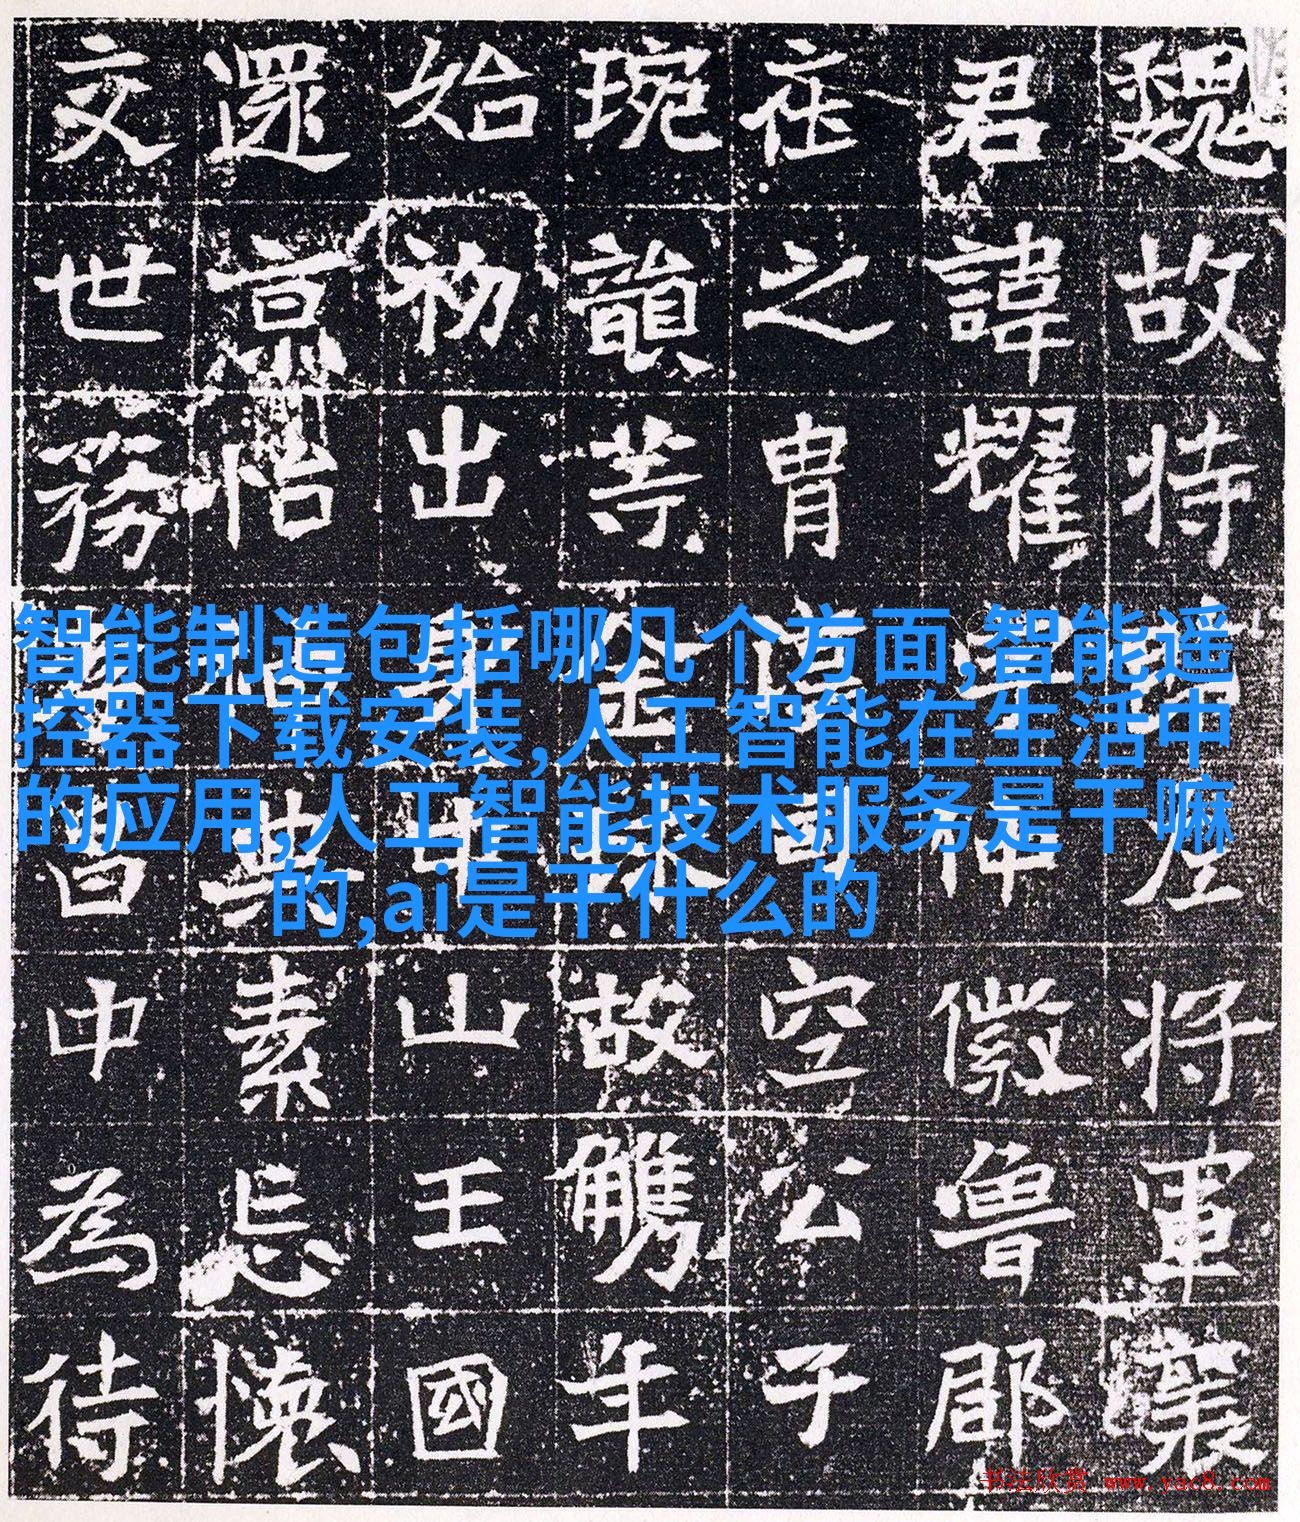 魏故持將軍襄
君諱耀徽魯郡
在之胄空公子
琬韻等金故觹年
始初出身中山王國
還京怡素忘懷
交世務中為待
智能制造包括哪几个方面,智能遥
控器下载安装,人工智能在生活中
的应用,人工智能技术服务是干嘛
的,ai是干什么的
书法欣赏 www.yac8.com